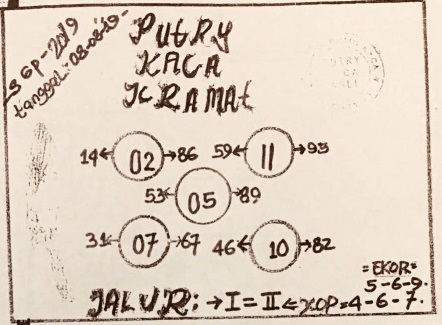 SGP-2019
tanggal: 08-08-19-
PUTRY
KACA
KRAMAt
14←02→86
59←11→93
53←05→89
31←07→67
46←10→82
=EKOR=
5-6-9-
JALUR: →I=II←KOP=4-6-7-